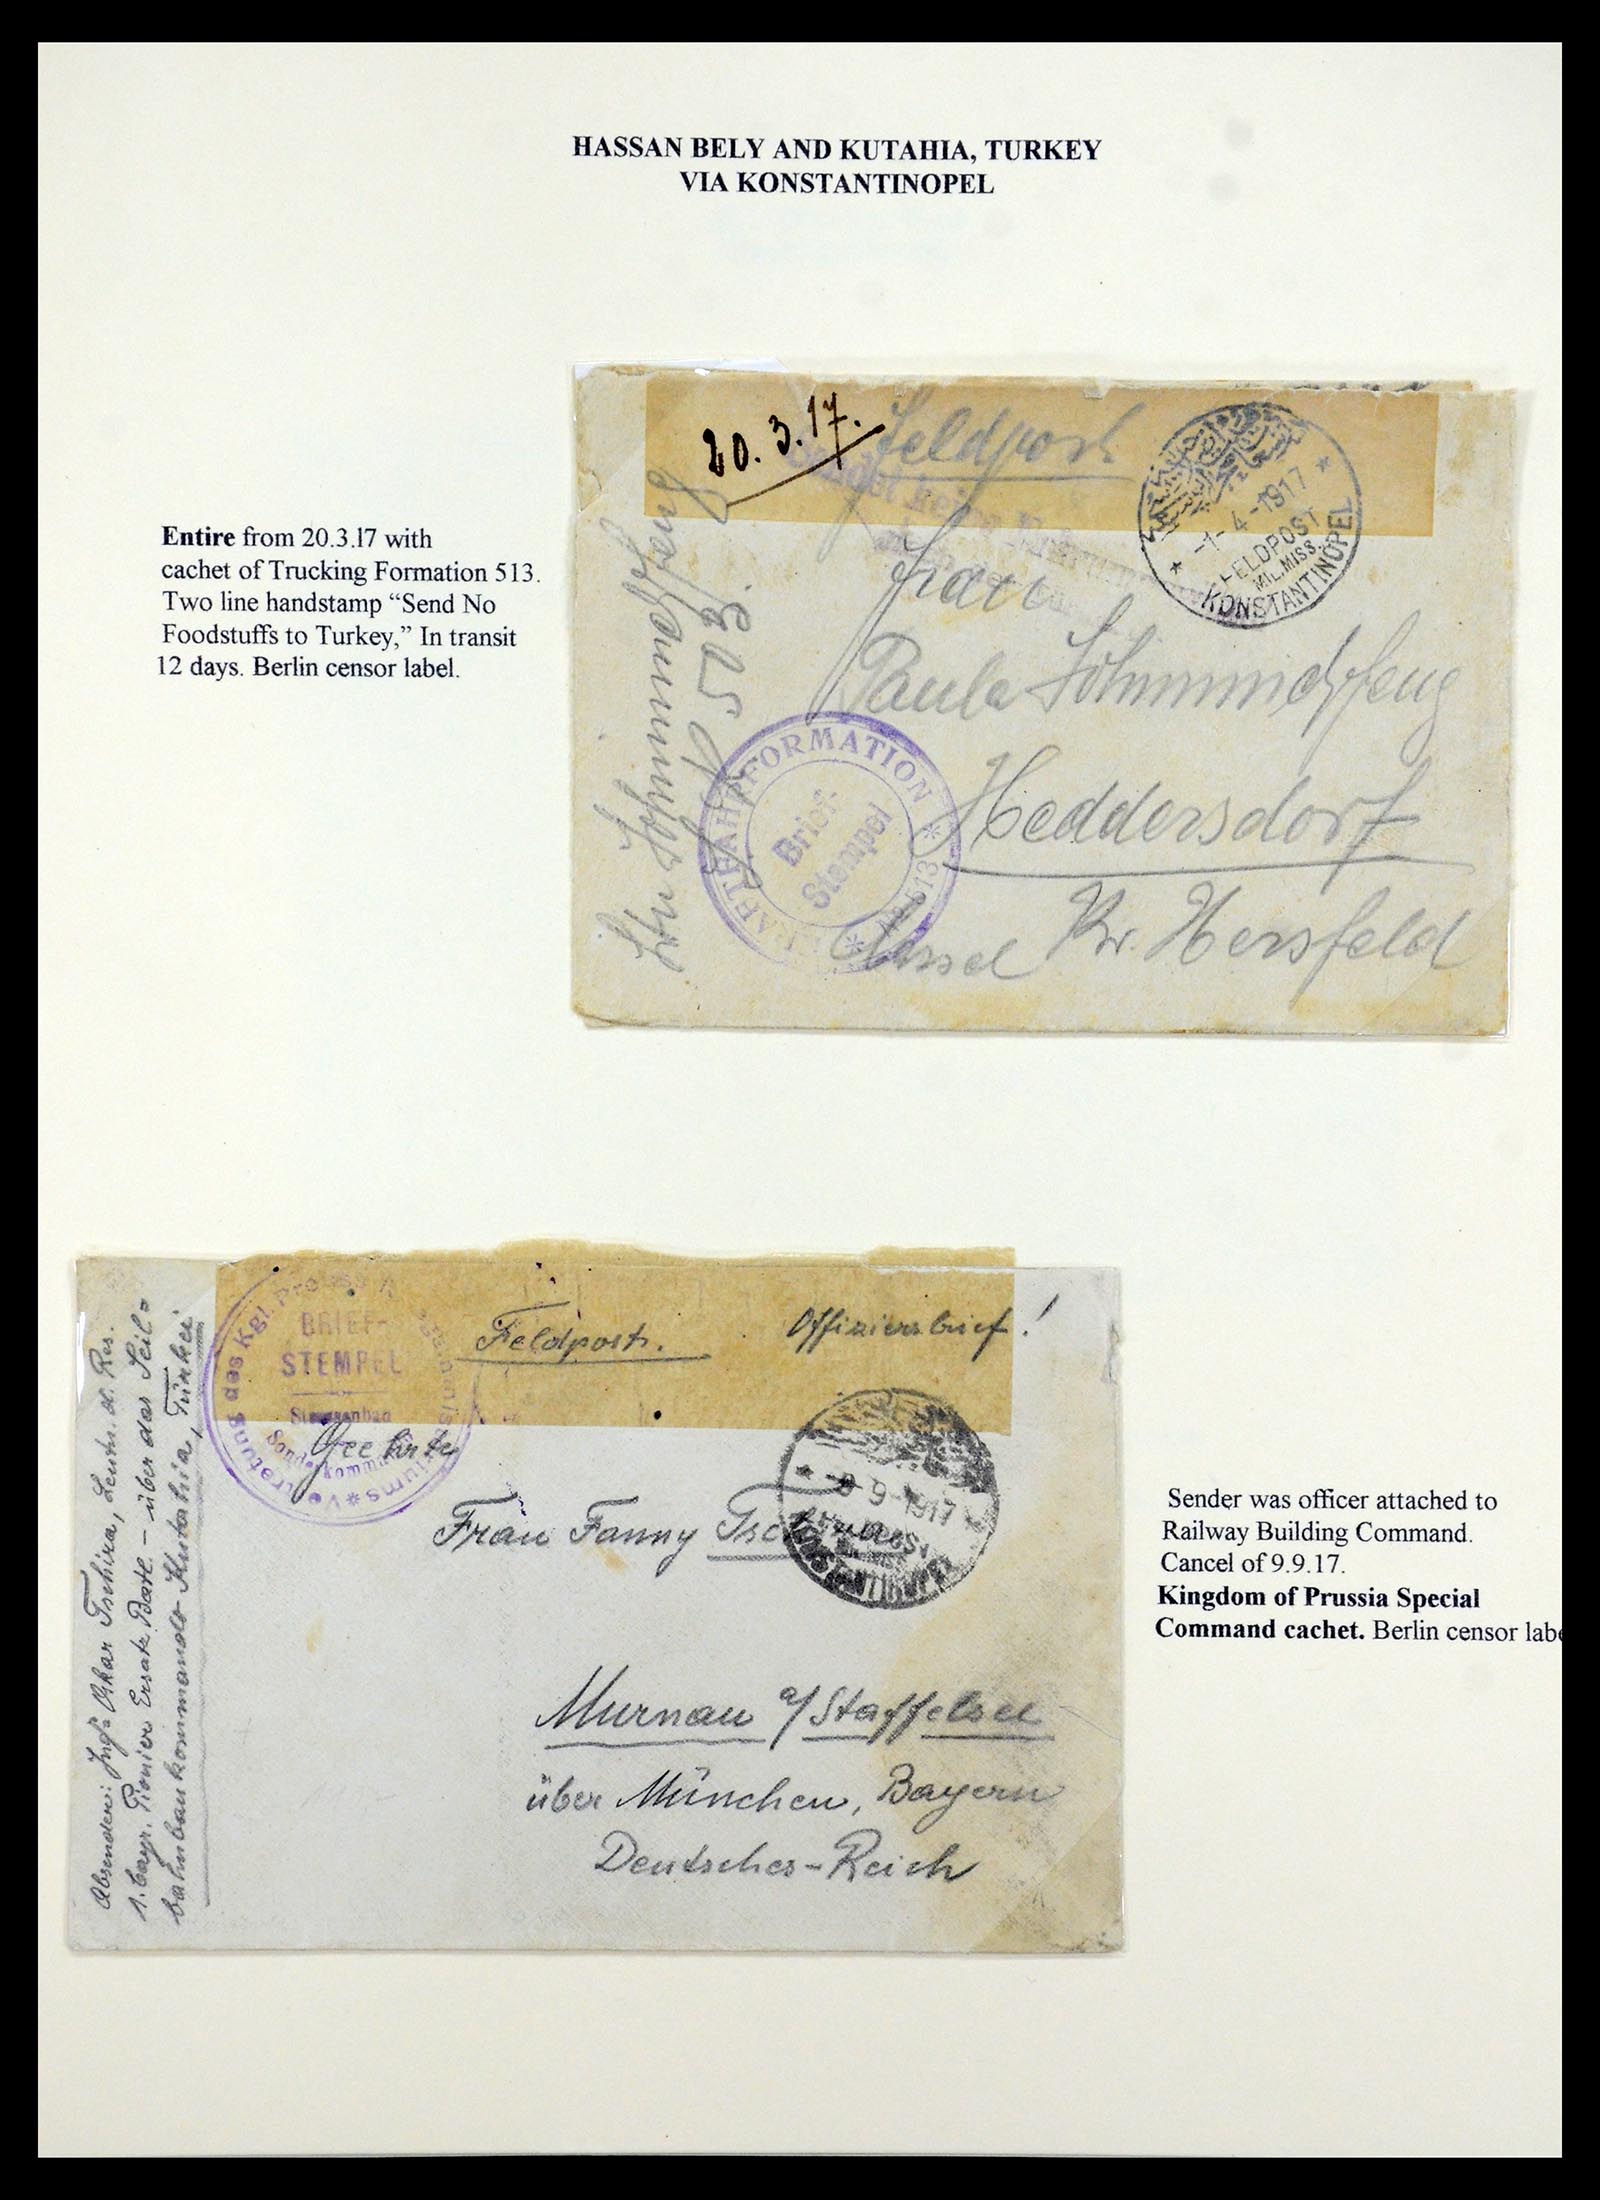 HASSAN BELY AND KUTAHIA, TURKEY
VIA KONSTANTINOPEL
Entire from 20.3.17 with
cachet of Trucking Formation 513.
Two line handstamp “Send No
Foodstuffs to Turkey,” In transit
12 days. Berlin censor label.
20.3.17.
Feldpost
-1-4-1917
FELDPOST
MIL.MISS.
KONSTANTINOPEL
Frau
Paula
Heddersdorf
Kr. Hersfeld
513
KRAFTFAHRFORMATION
Brief-
Stempel
No 513
Feldpost. Offiziersbrief!
Vertretung des Kgl.
BRIEF-
STEMPEL
Geehrte
Frau Fanny
9-1917
Murnau a/Staffelsee
über München, Bayern
Deutsches-Reich
Absender: Oskar Tschira, Leutn. d. Res.
1. bayr. Pionier Ersatz Batl. - über das Seil-
bahnbaukommando Kutahia, Türkei
Sender was officer attached to
Railway Building Command.
Cancel of 9.9.17.
Kingdom of Prussia Special
Command cachet. Berlin censor labe